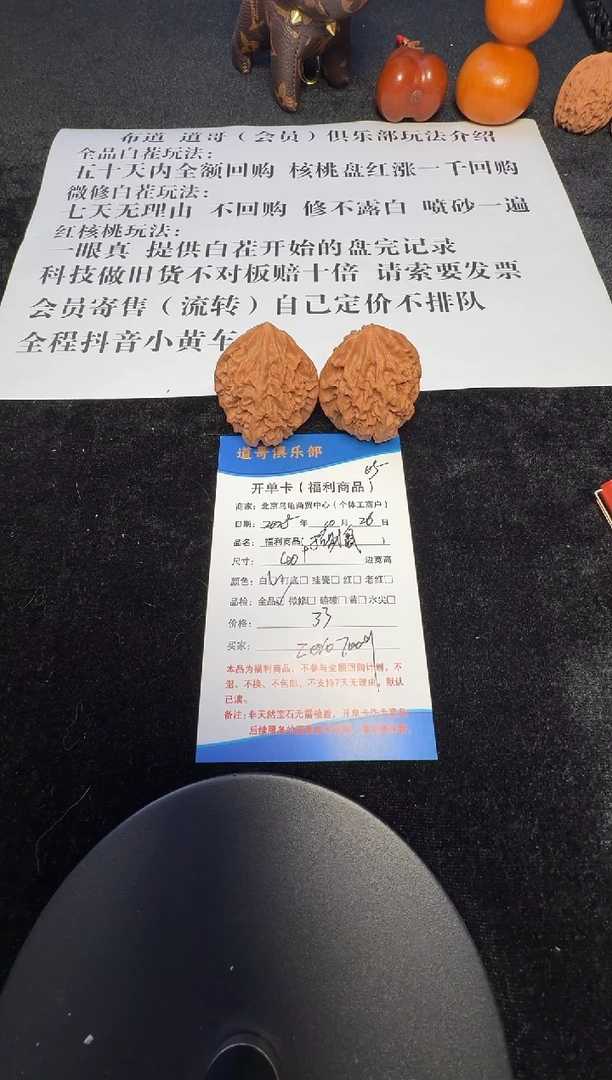 布道 道哥（会员）俱乐部玩法介绍
全品白茬玩法：
五十天内全额回购 核桃盘红涨一千回购
微修白茬玩法：
七天无理由 不回购 修不露白 喷砂一遍
红核桃玩法：
一眼真 提供白茬开始的盘完记录
科技做旧货不对板赔十倍 请索要发票
会员寄售（流转）自己定价不排队
全程抖音小黄车
道哥俱乐部
开单卡（福利商品）
商家：北京乌龟商贸中心（个体工商户）
日期：2025 年 10 月 26 日
品名：福利商品（ ）
尺寸： 边宽高
颜色：白 打底□ 挂瓷□ 红□ 老红□
品检：全品 微修□ 嗑碰□ 黄□ 水尖□
价格：33
买家：
本品为福利商品，不参与全额回购计划，不
退、不换、不包邮，不支持7天无理由，默认
已读。
备注：非天然宝石无需检验，开单卡作为
后续服务